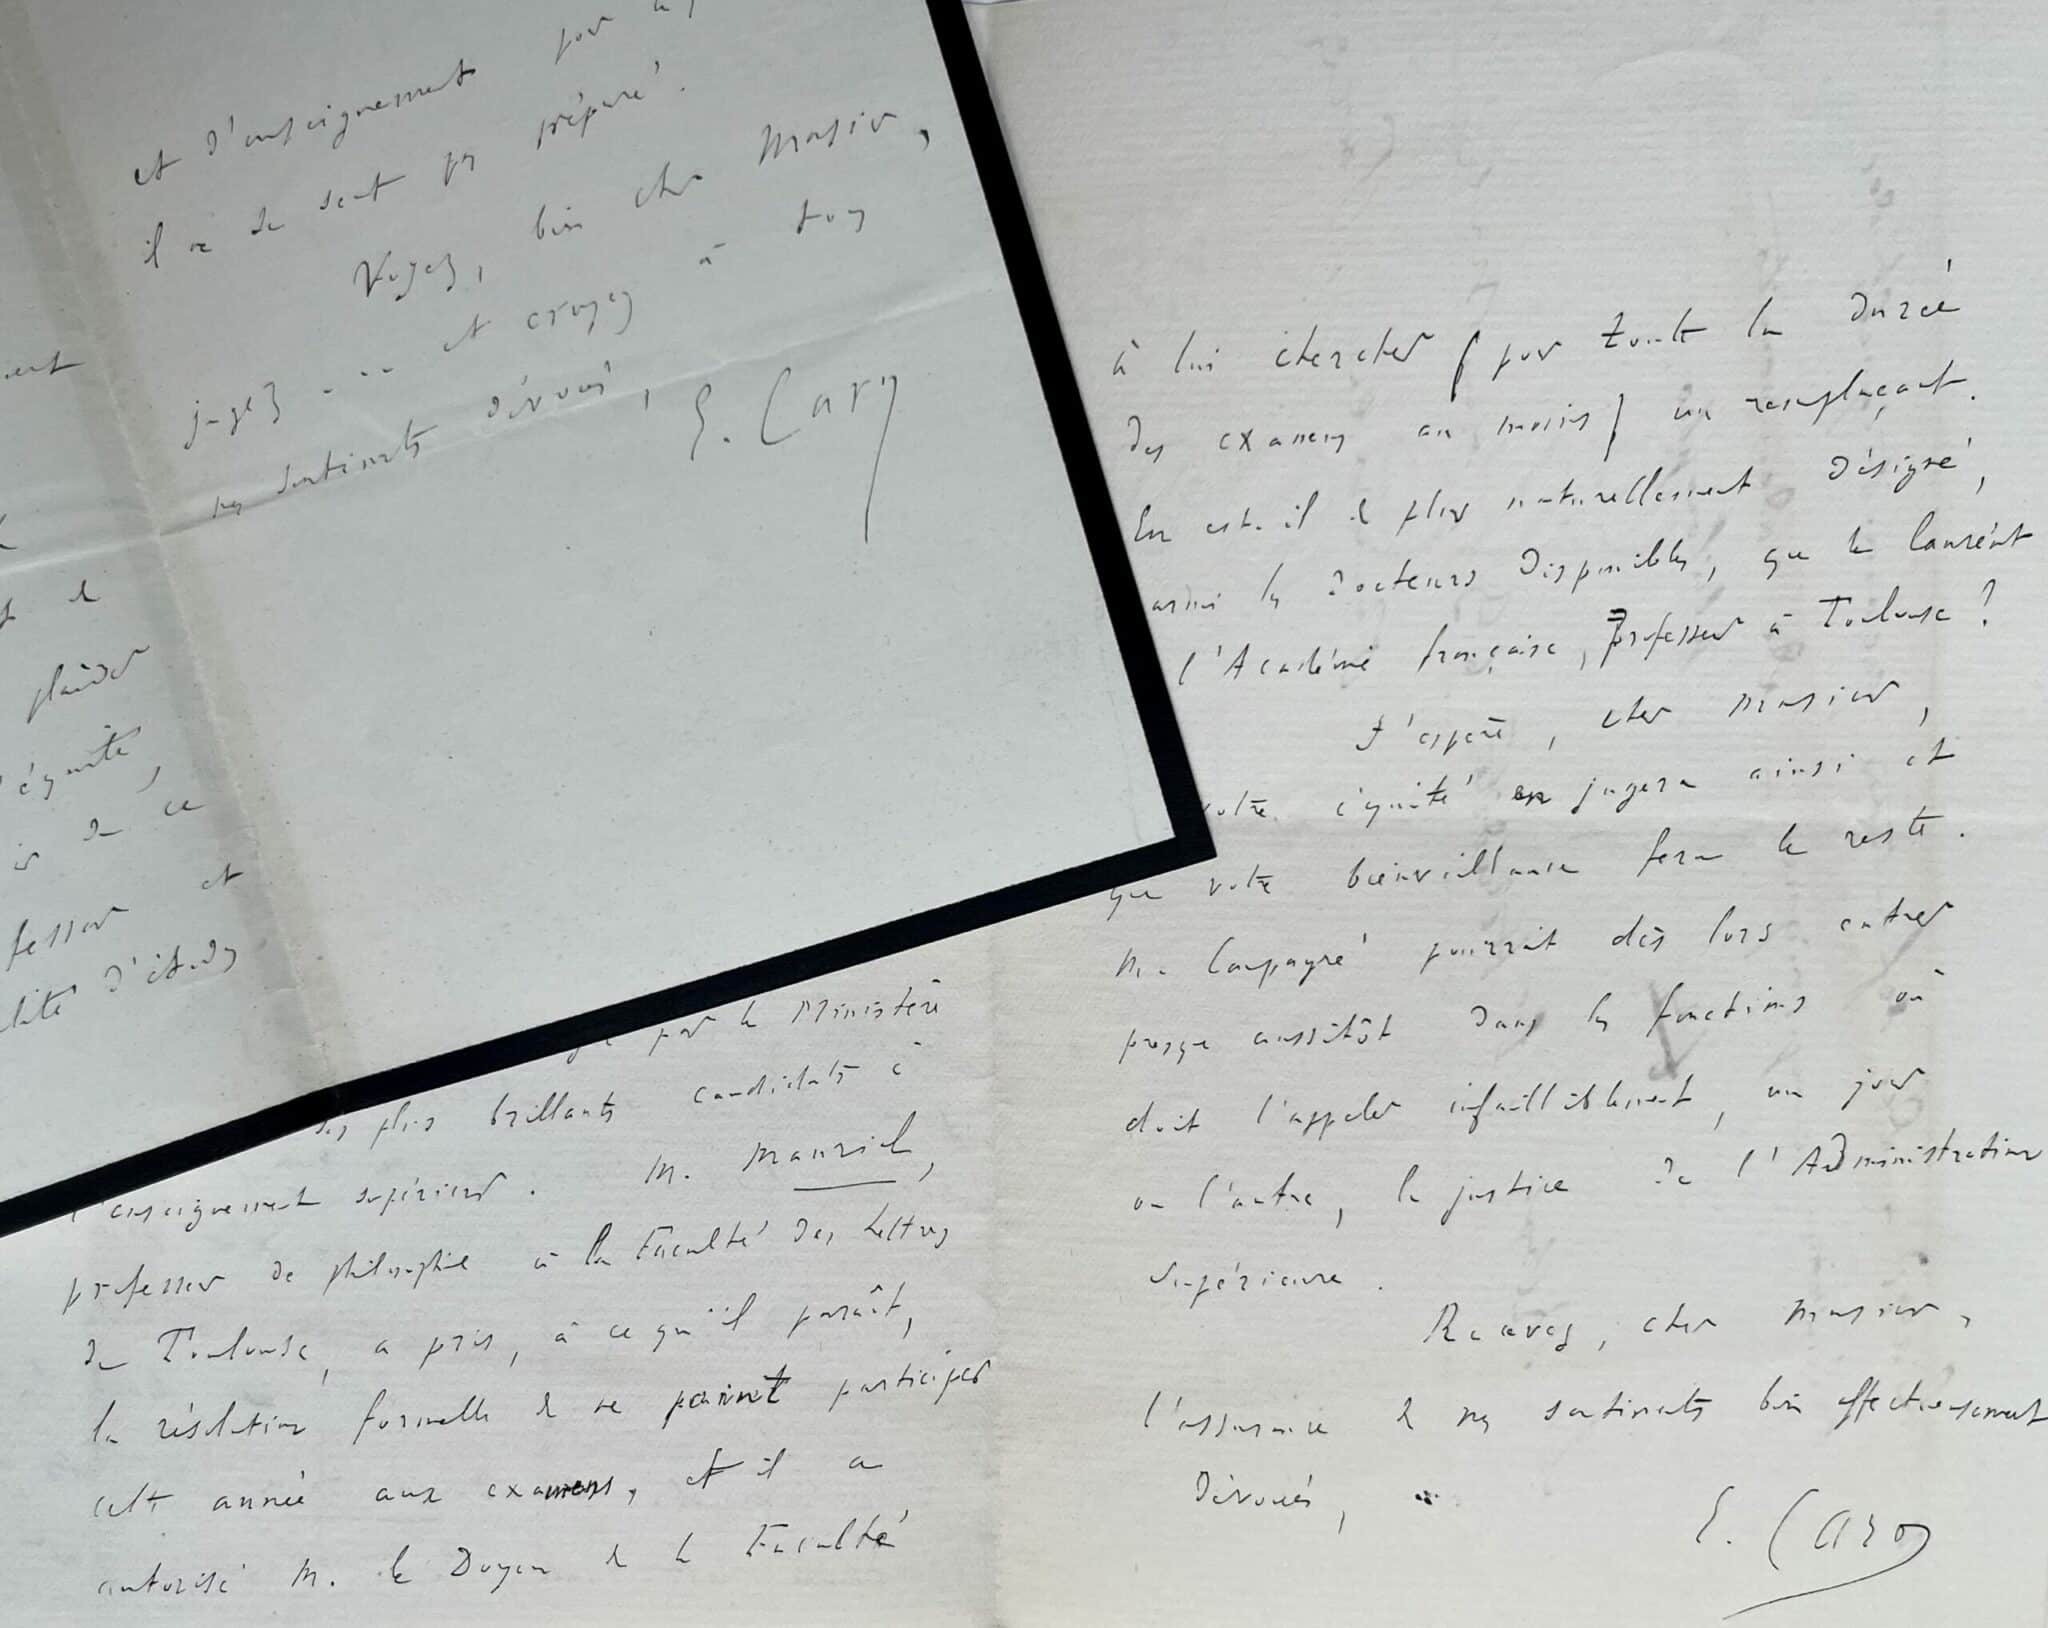 et d'enseignement pour
il ne se sent pas préparé.
Voyez, bien cher Monsieur,
jugez ... et croyez à tous
mes sentiments dévoués,
E. Caro
plaider
équité,
de ce
fesseur et
d'études
par le Ministère
des plus brillants candidats à
l'enseignement supérieur. M. Mauriel,
professeur de philosophie à la Faculté des Lettres
de Toulouse, a pris, à ce qu'il paraît,
la résolution formelle de ne point participer
cette année aux examens, et il a
autorisé M. le Doyen de la Faculté
à lui chercher (pour toute la durée
des examens au moins) un remplaçant.
En est-il de plus naturellement désigné,
parmi les Docteurs disponibles, que le lauréat
l'Académie française, professeur à Toulouse ?
J'espère, cher Monsieur,
votre équité en jugera ainsi et
que votre bienveillance fera le reste.
M. Compayré pourrait dès lors entrer
presque aussitôt dans les fonctions où
doit l'appeler infailliblement, un jour
ou l'autre, la justice de l'Administration
supérieure.
Recevez, cher Monsieur,
l'assurance de mes sentiments bien affectueusement
dévoués,
E. Caro